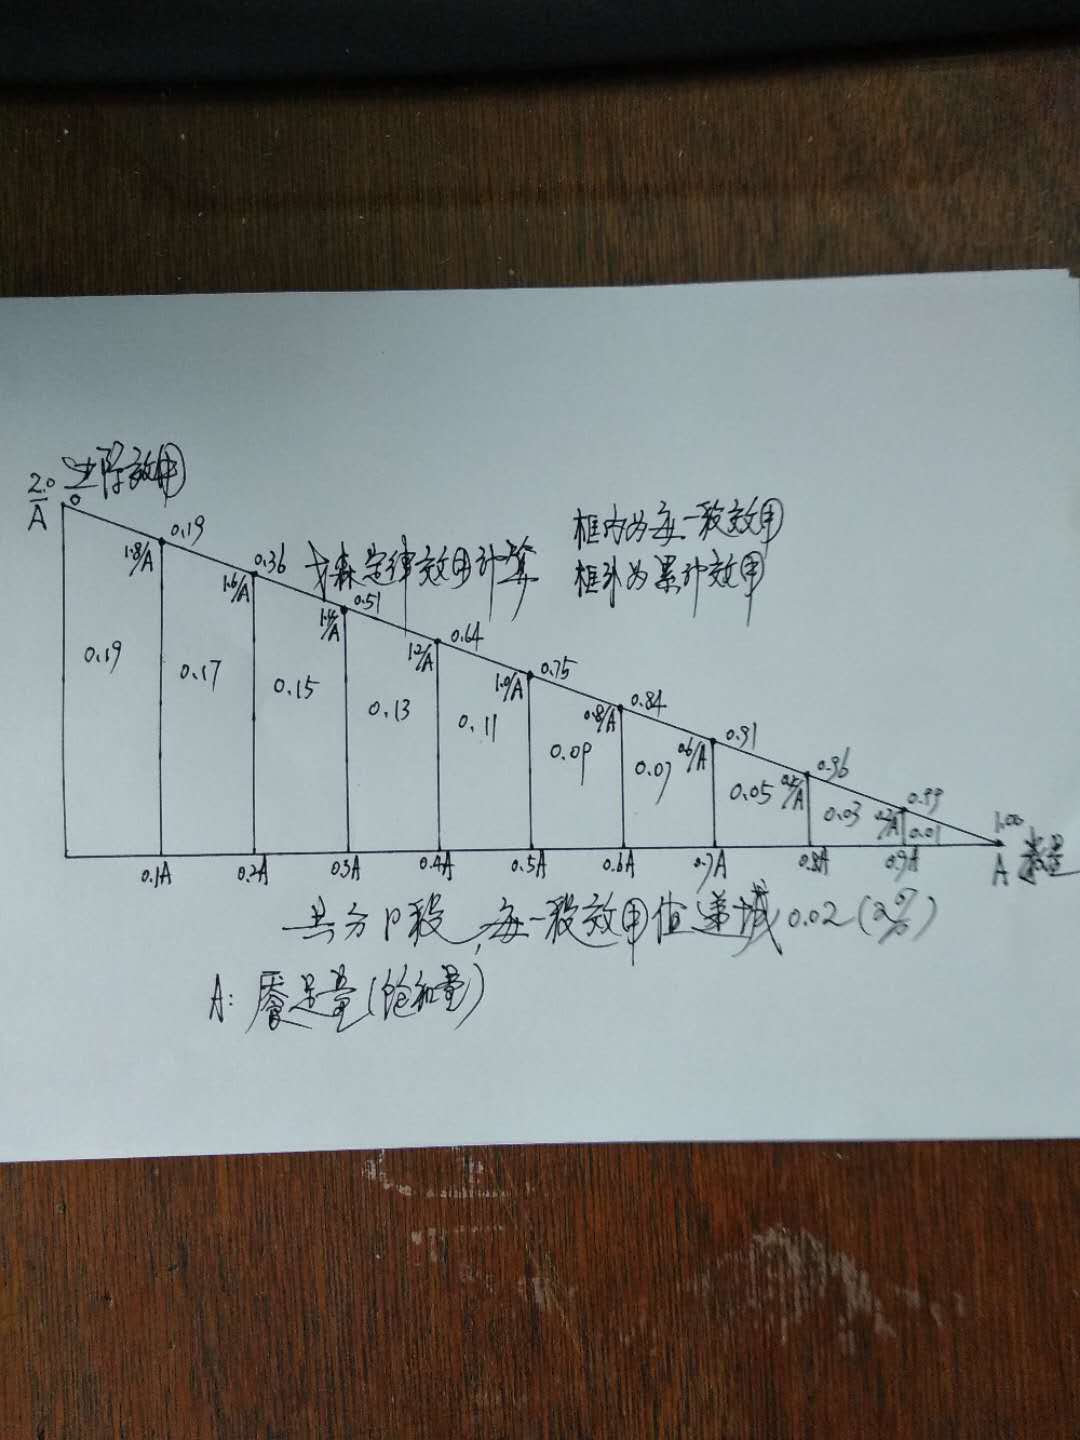 边际效用
2.0/A
0
0.19
0.36
0.51
0.64
0.75
0.84
0.91
0.96
0.99
1.00
森定律效用计算
框内为每一段效用
框外为累计效用
1.8/A
1.6/A
1.4/A
1.2/A
1.0/A
0.8/A
0.6/A
0.4/A
0.2/A
0.19
0.17
0.15
0.13
0.11
0.09
0.07
0.05
0.03
0.01
0.1A
0.2A
0.3A
0.4A
0.5A
0.6A
0.7A
0.8A
0.9A
A 数量
共分10段,每一段效用值递减0.02(2%)
A: 餍足量(饱和量)